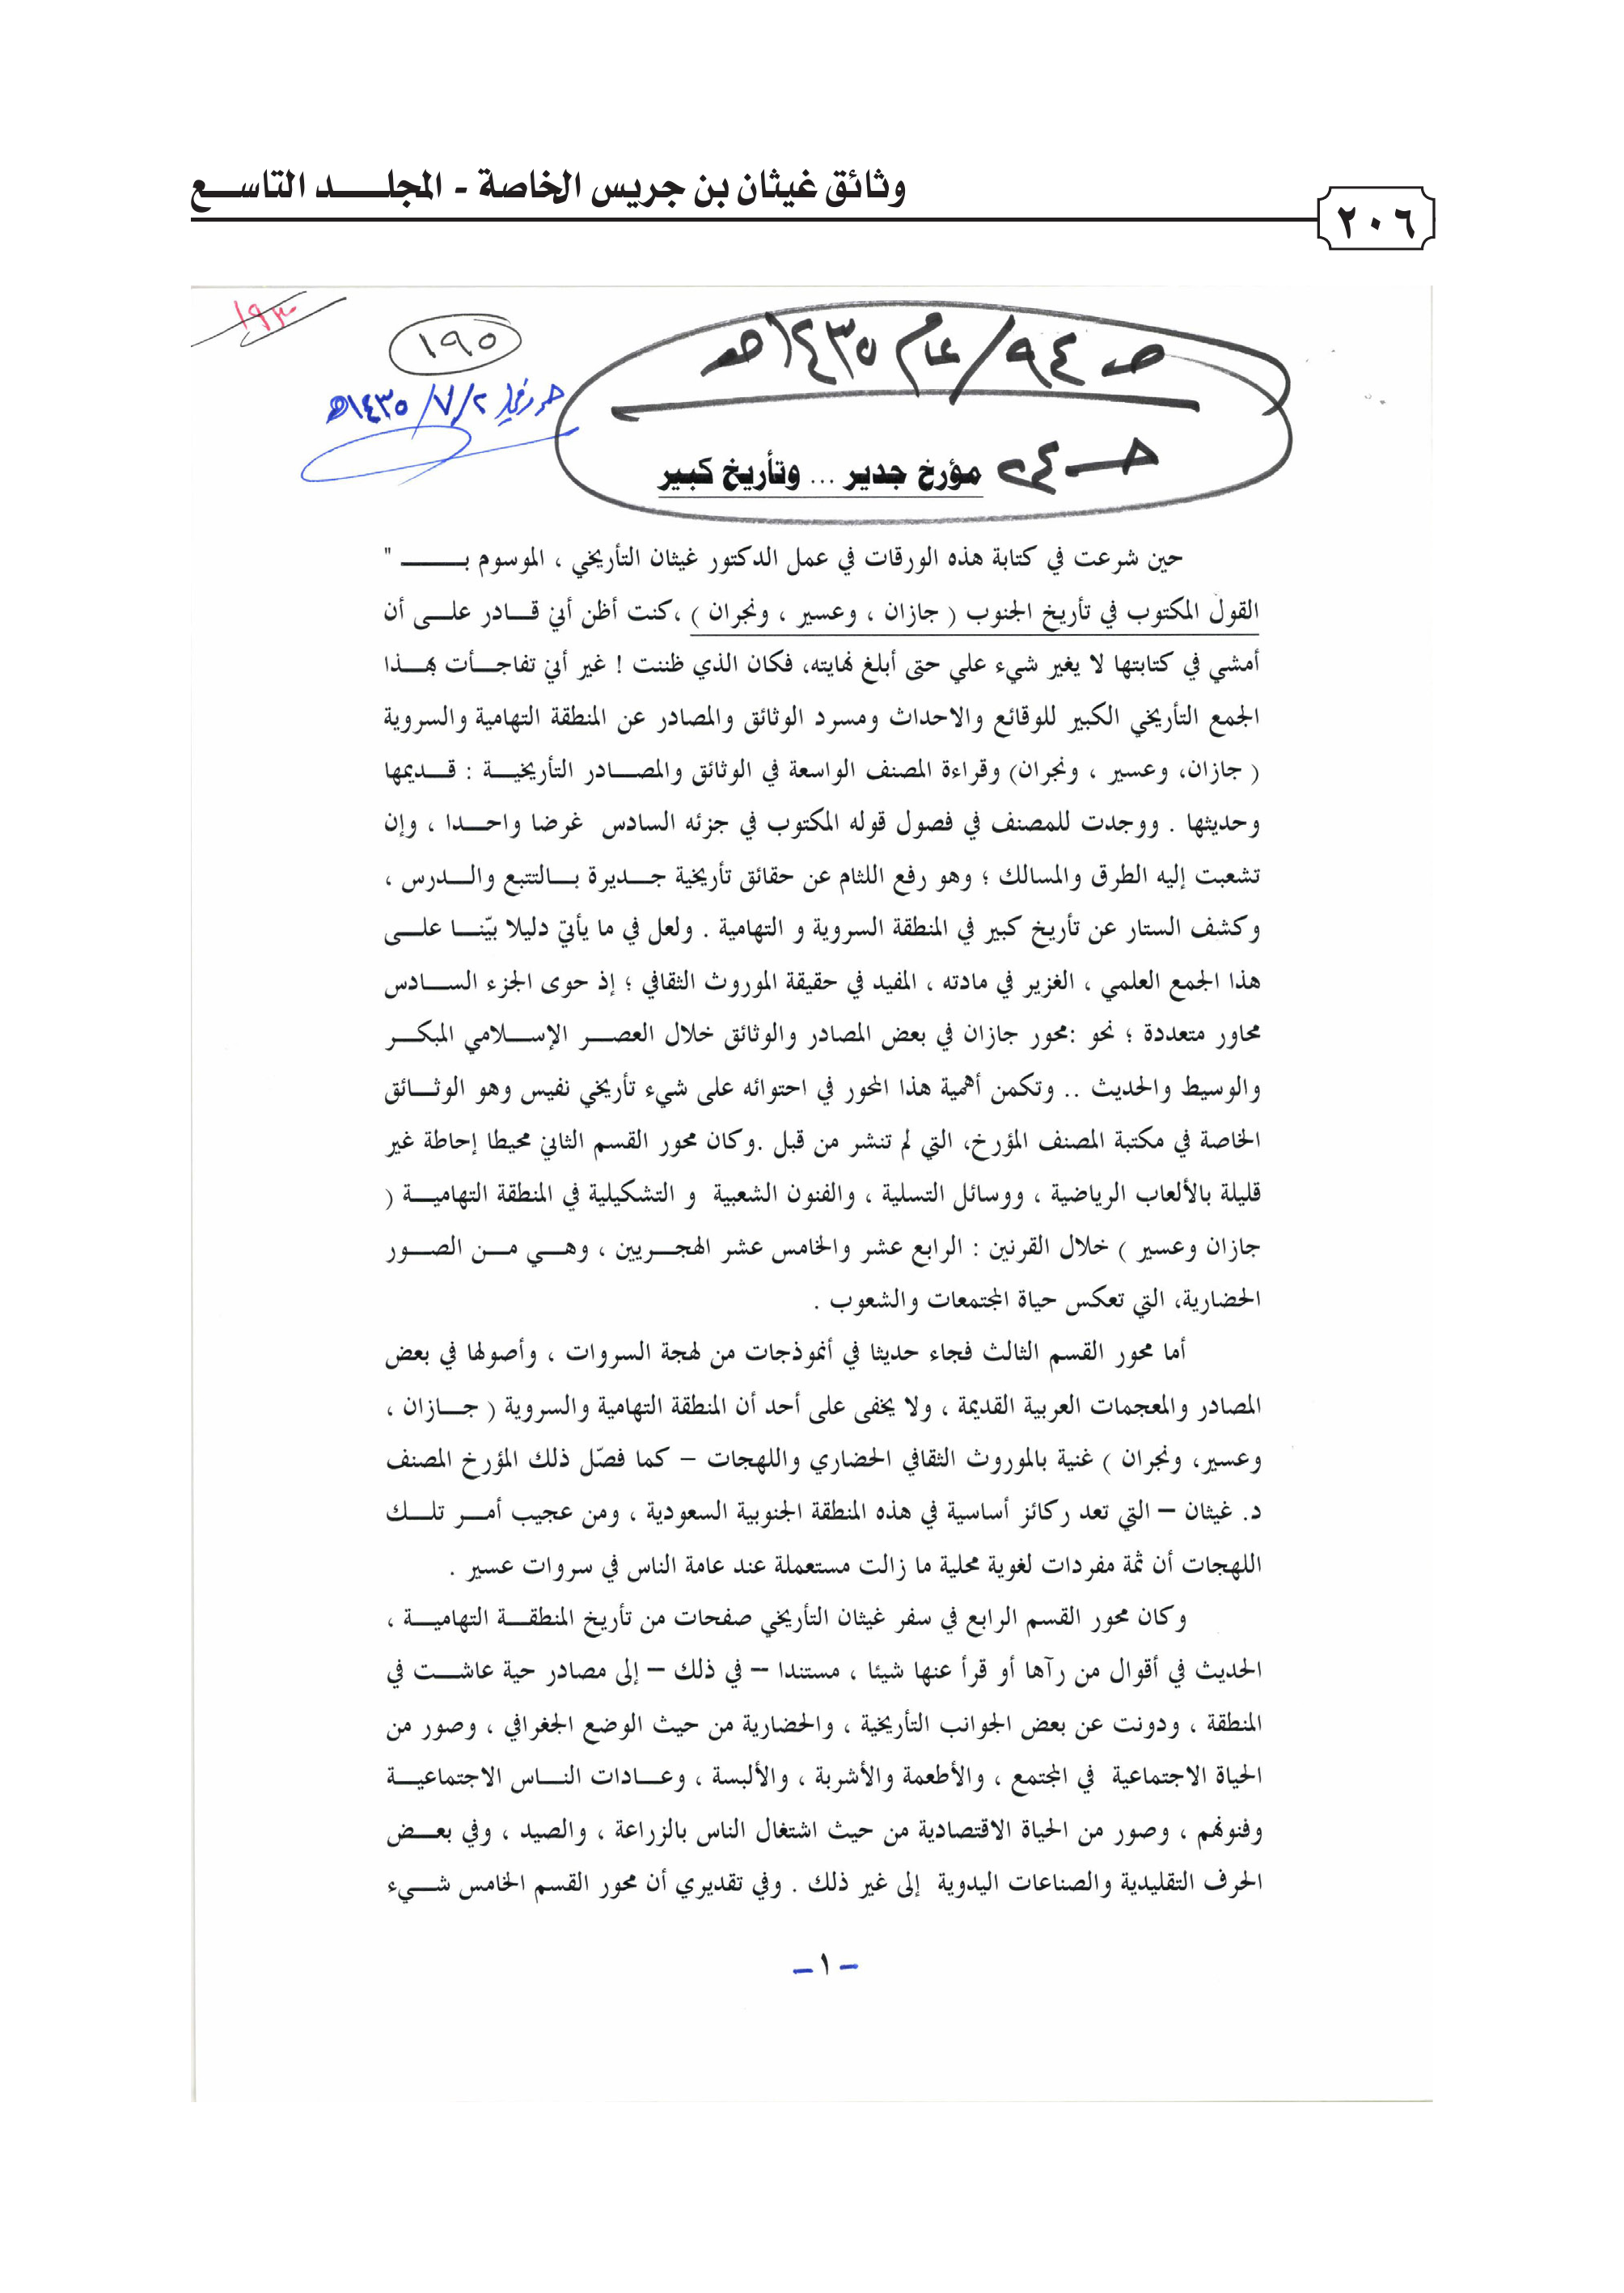 وثائق غيثان بن جريس الخاصة - المجلد التاسع
٢٠٦
١٩٥
صـ ٩٤/عام ١٤٣٥هـ
٢/٧/١٤٣٥هـ
حـ ٢٤
مؤرخ جدير ... وتأريخ كبير
حين شرعت في كتابة هذه الورقات في عمل الدكتور غيثان التأريخي ، الموسوم بـ "
القول المكتوب في تأريخ الجنوب ( جازان ، وعسير ، ونجران ) ،كنت أظن أني قادر على أن
أمشي في كتابتها لا يغير شيء علي حتى أبلغ نهايته، فكان الذي ظننت ! غير أني تفاجأت بهذا
الجمع التأريخي الكبير للوقائع والاحداث ومسرد الوثائق والمصادر عن المنطقة التهامية والسروية
( جازان، وعسير ، ونجران) وقراءة المصنف الواسعة في الوثائق والمصادر التأريخية : قديمها
وحديثها . ووجدت للمصنف في فصول قوله المكتوب في جزئه السادس غرضا واحدا ، وإن
تشعبت إليه الطرق والمسالك ؛ وهو رفع اللثام عن حقائق تأريخية جديرة بالتتبع والدرس ،
وكشف الستار عن تأريخ كبير في المنطقة السروية و التهامية . ولعل في ما يأتي دليلا بيّنا على
هذا الجمع العلمي ، الغزير في مادته ، المفيد في حقيقة الموروث الثقافي ؛ إذ حوى الجزء السادس
محاور متعددة ؛ نحو :محور جازان في بعض المصادر والوثائق خلال العصر الإسلامي المبكر
والوسيط والحديث .. وتكمن أهمية هذا المحور في احتوائه على شيء تأريخي نفيس وهو الوثائق
الخاصة في مكتبة المصنف المؤرخ، التي لم تنشر من قبل .وكان محور القسم الثاني محيطا إحاطة غير
قليلة بالألعاب الرياضية ، ووسائل التسلية ، والفنون الشعبية و التشكيلية في المنطقة التهامية (
جازان وعسير ) خلال القرنين : الرابع عشر والخامس عشر الهجريين ، وهي من الصور
الحضارية، التي تعكس حياة المجتمعات والشعوب .
أما محور القسم الثالث فجاء حديثا في أنموذجات من لهجة السروات ، وأصولها في بعض
المصادر والمعجمات العربية القديمة ، ولا يخفى على أحد أن المنطقة التهامية والسروية ( جازان ،
وعسير، ونجران ) غنية بالموروث الثقافي الحضاري واللهجات – كما فصّل ذلك المؤرخ المصنف
د. غيثان – التي تعد ركائز أساسية في هذه المنطقة الجنوبية السعودية ، ومن عجيب أمر تلك
اللهجات أن ثمة مفردات لغوية محلية ما زالت مستعملة عند عامة الناس في سروات عسير .
وكان محور القسم الرابع في سفر غيثان التأريخي صفحات من تأريخ المنطقة التهامية ،
الحديث في أقوال من رآها أو قرأ عنها شيئا ، مستندا – في ذلك – إلى مصادر حية عاشت في
المنطقة ، ودونت عن بعض الجوانب التأريخية ، والحضارية من حيث الوضع الجغرافي ، وصور من
الحياة الاجتماعية في المجتمع ، والأطعمة والأشربة ، والألبسة ، وعادات الناس الاجتماعية
وفنونهم ، وصور من الحياة الاقتصادية من حيث اشتغال الناس بالزراعة ، والصيد ، وفي بعض
الحرف التقليدية والصناعات اليدوية إلى غير ذلك . وفي تقديري أن محور القسم الخامس شيء
- ١ -